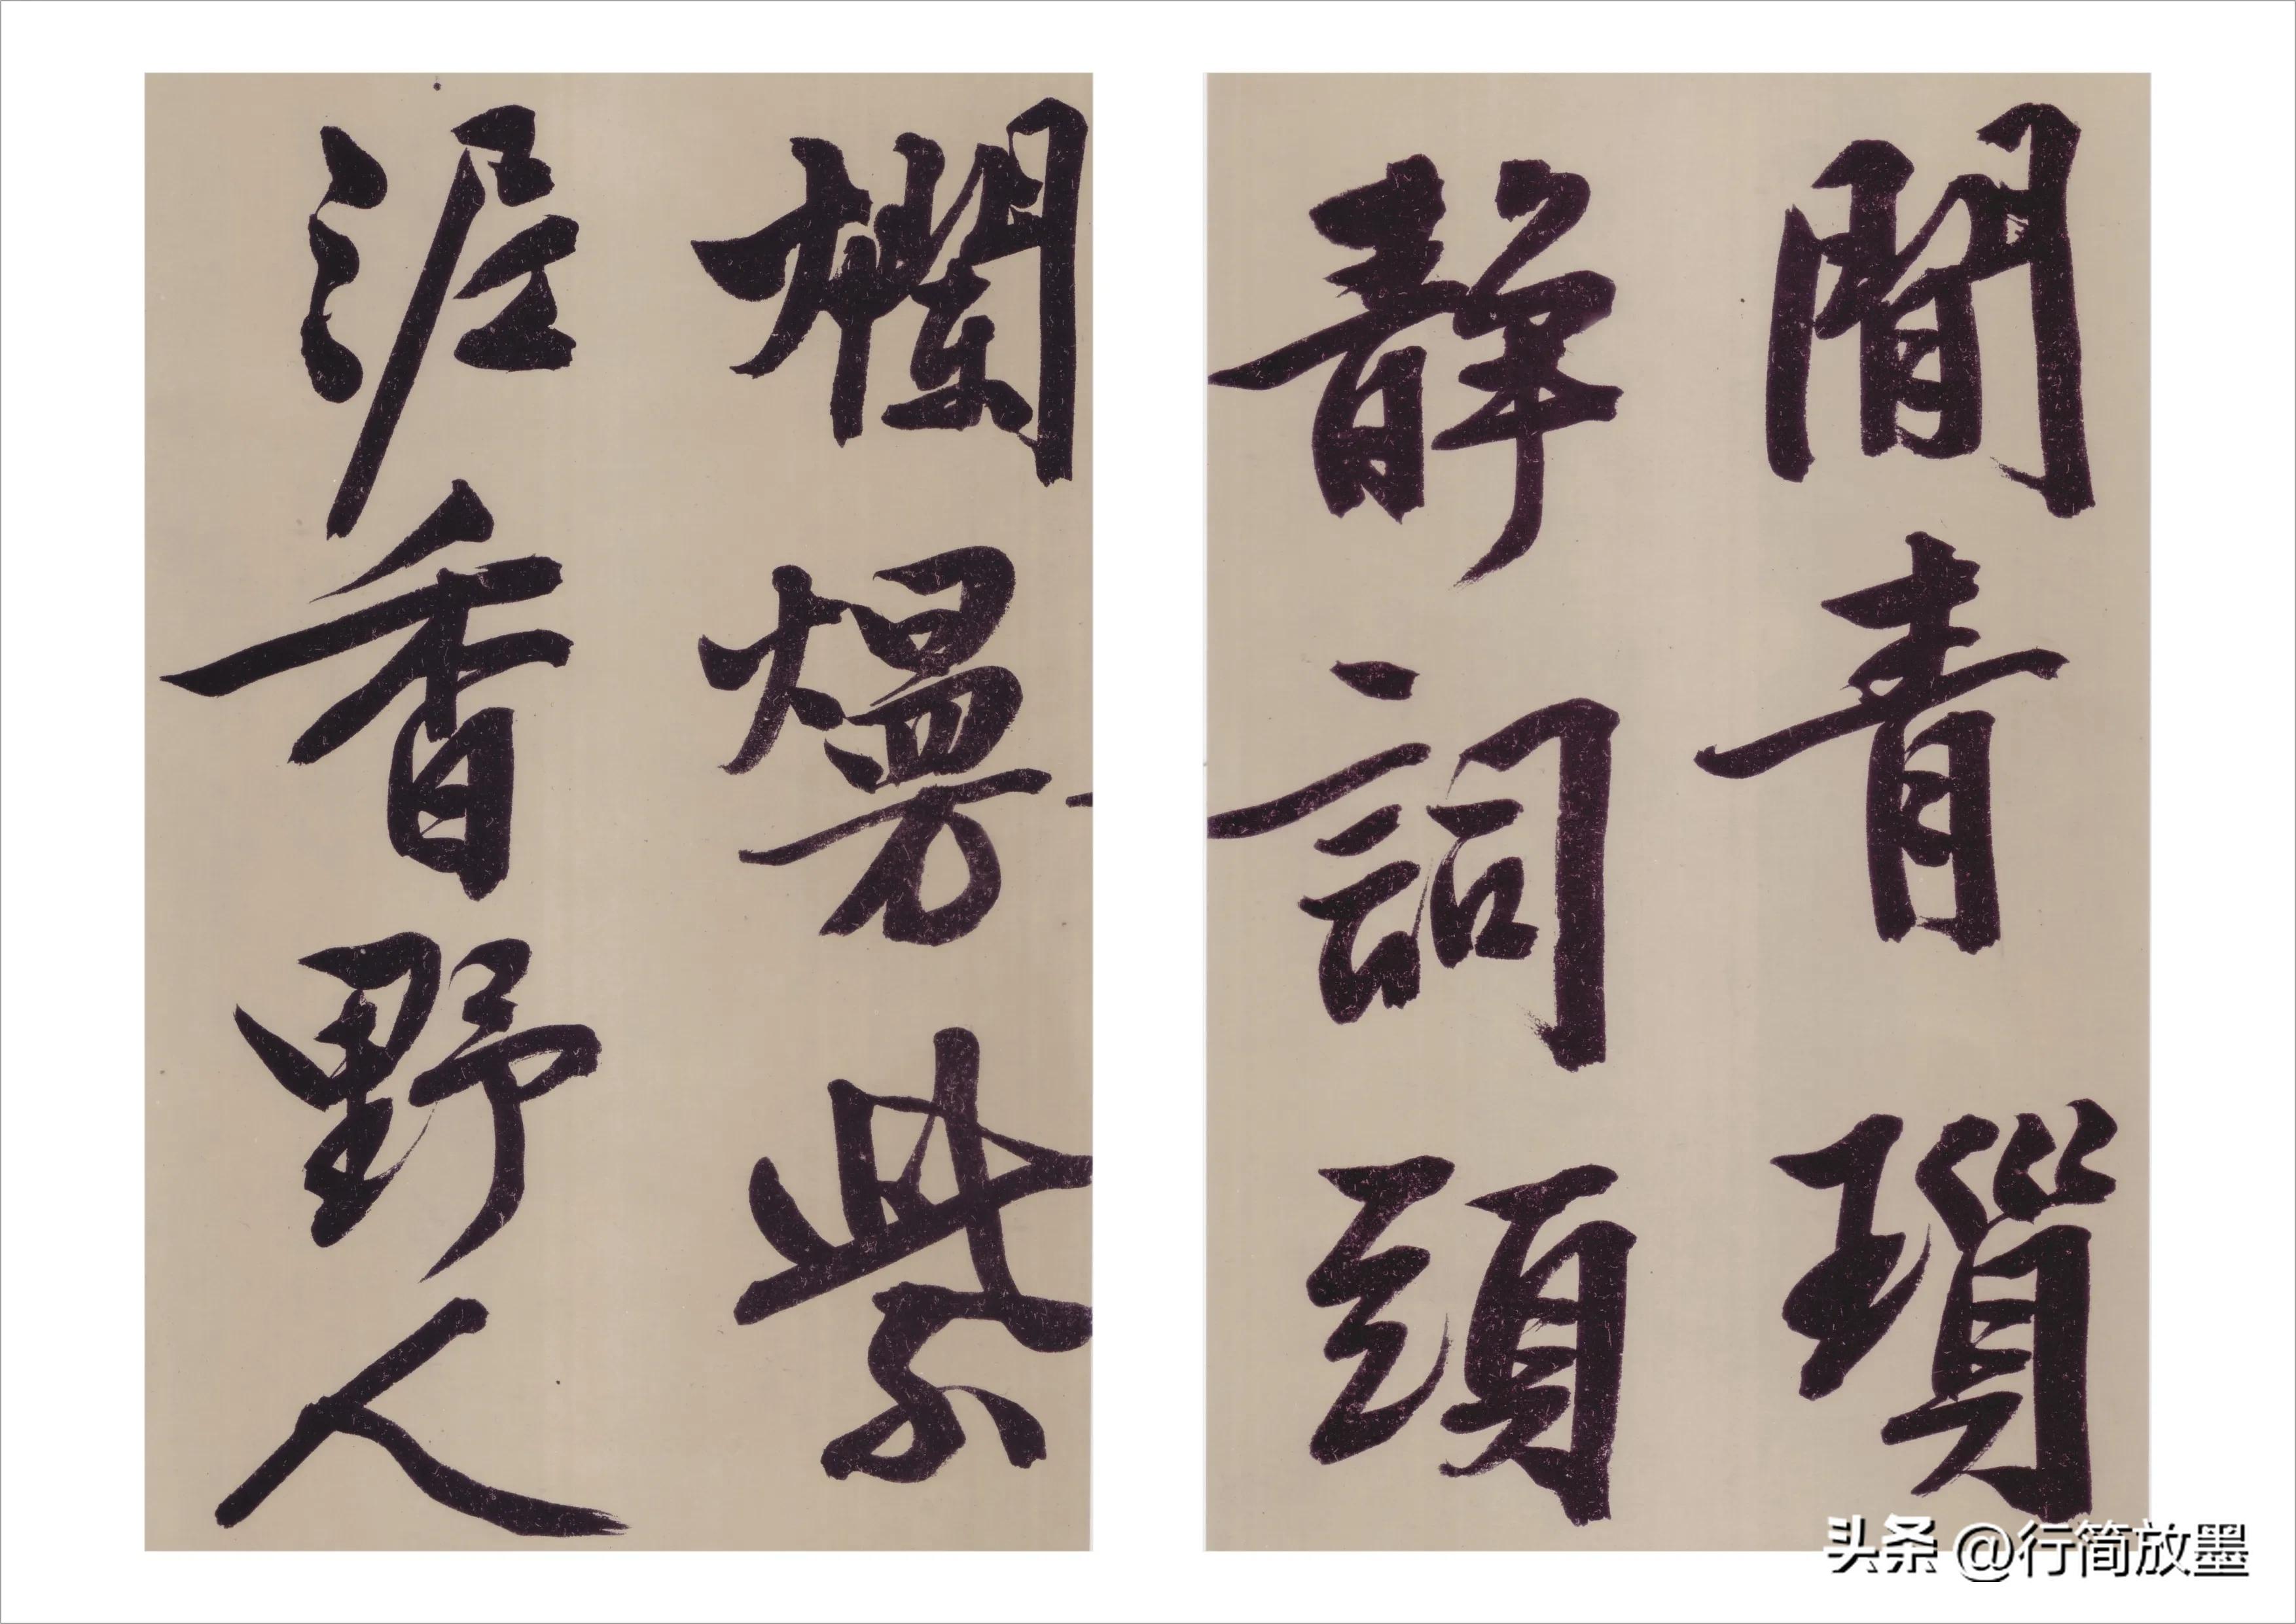 閒青瑣
靜詞頭
爛熳紫
泥香野人
头条 @行简放墨